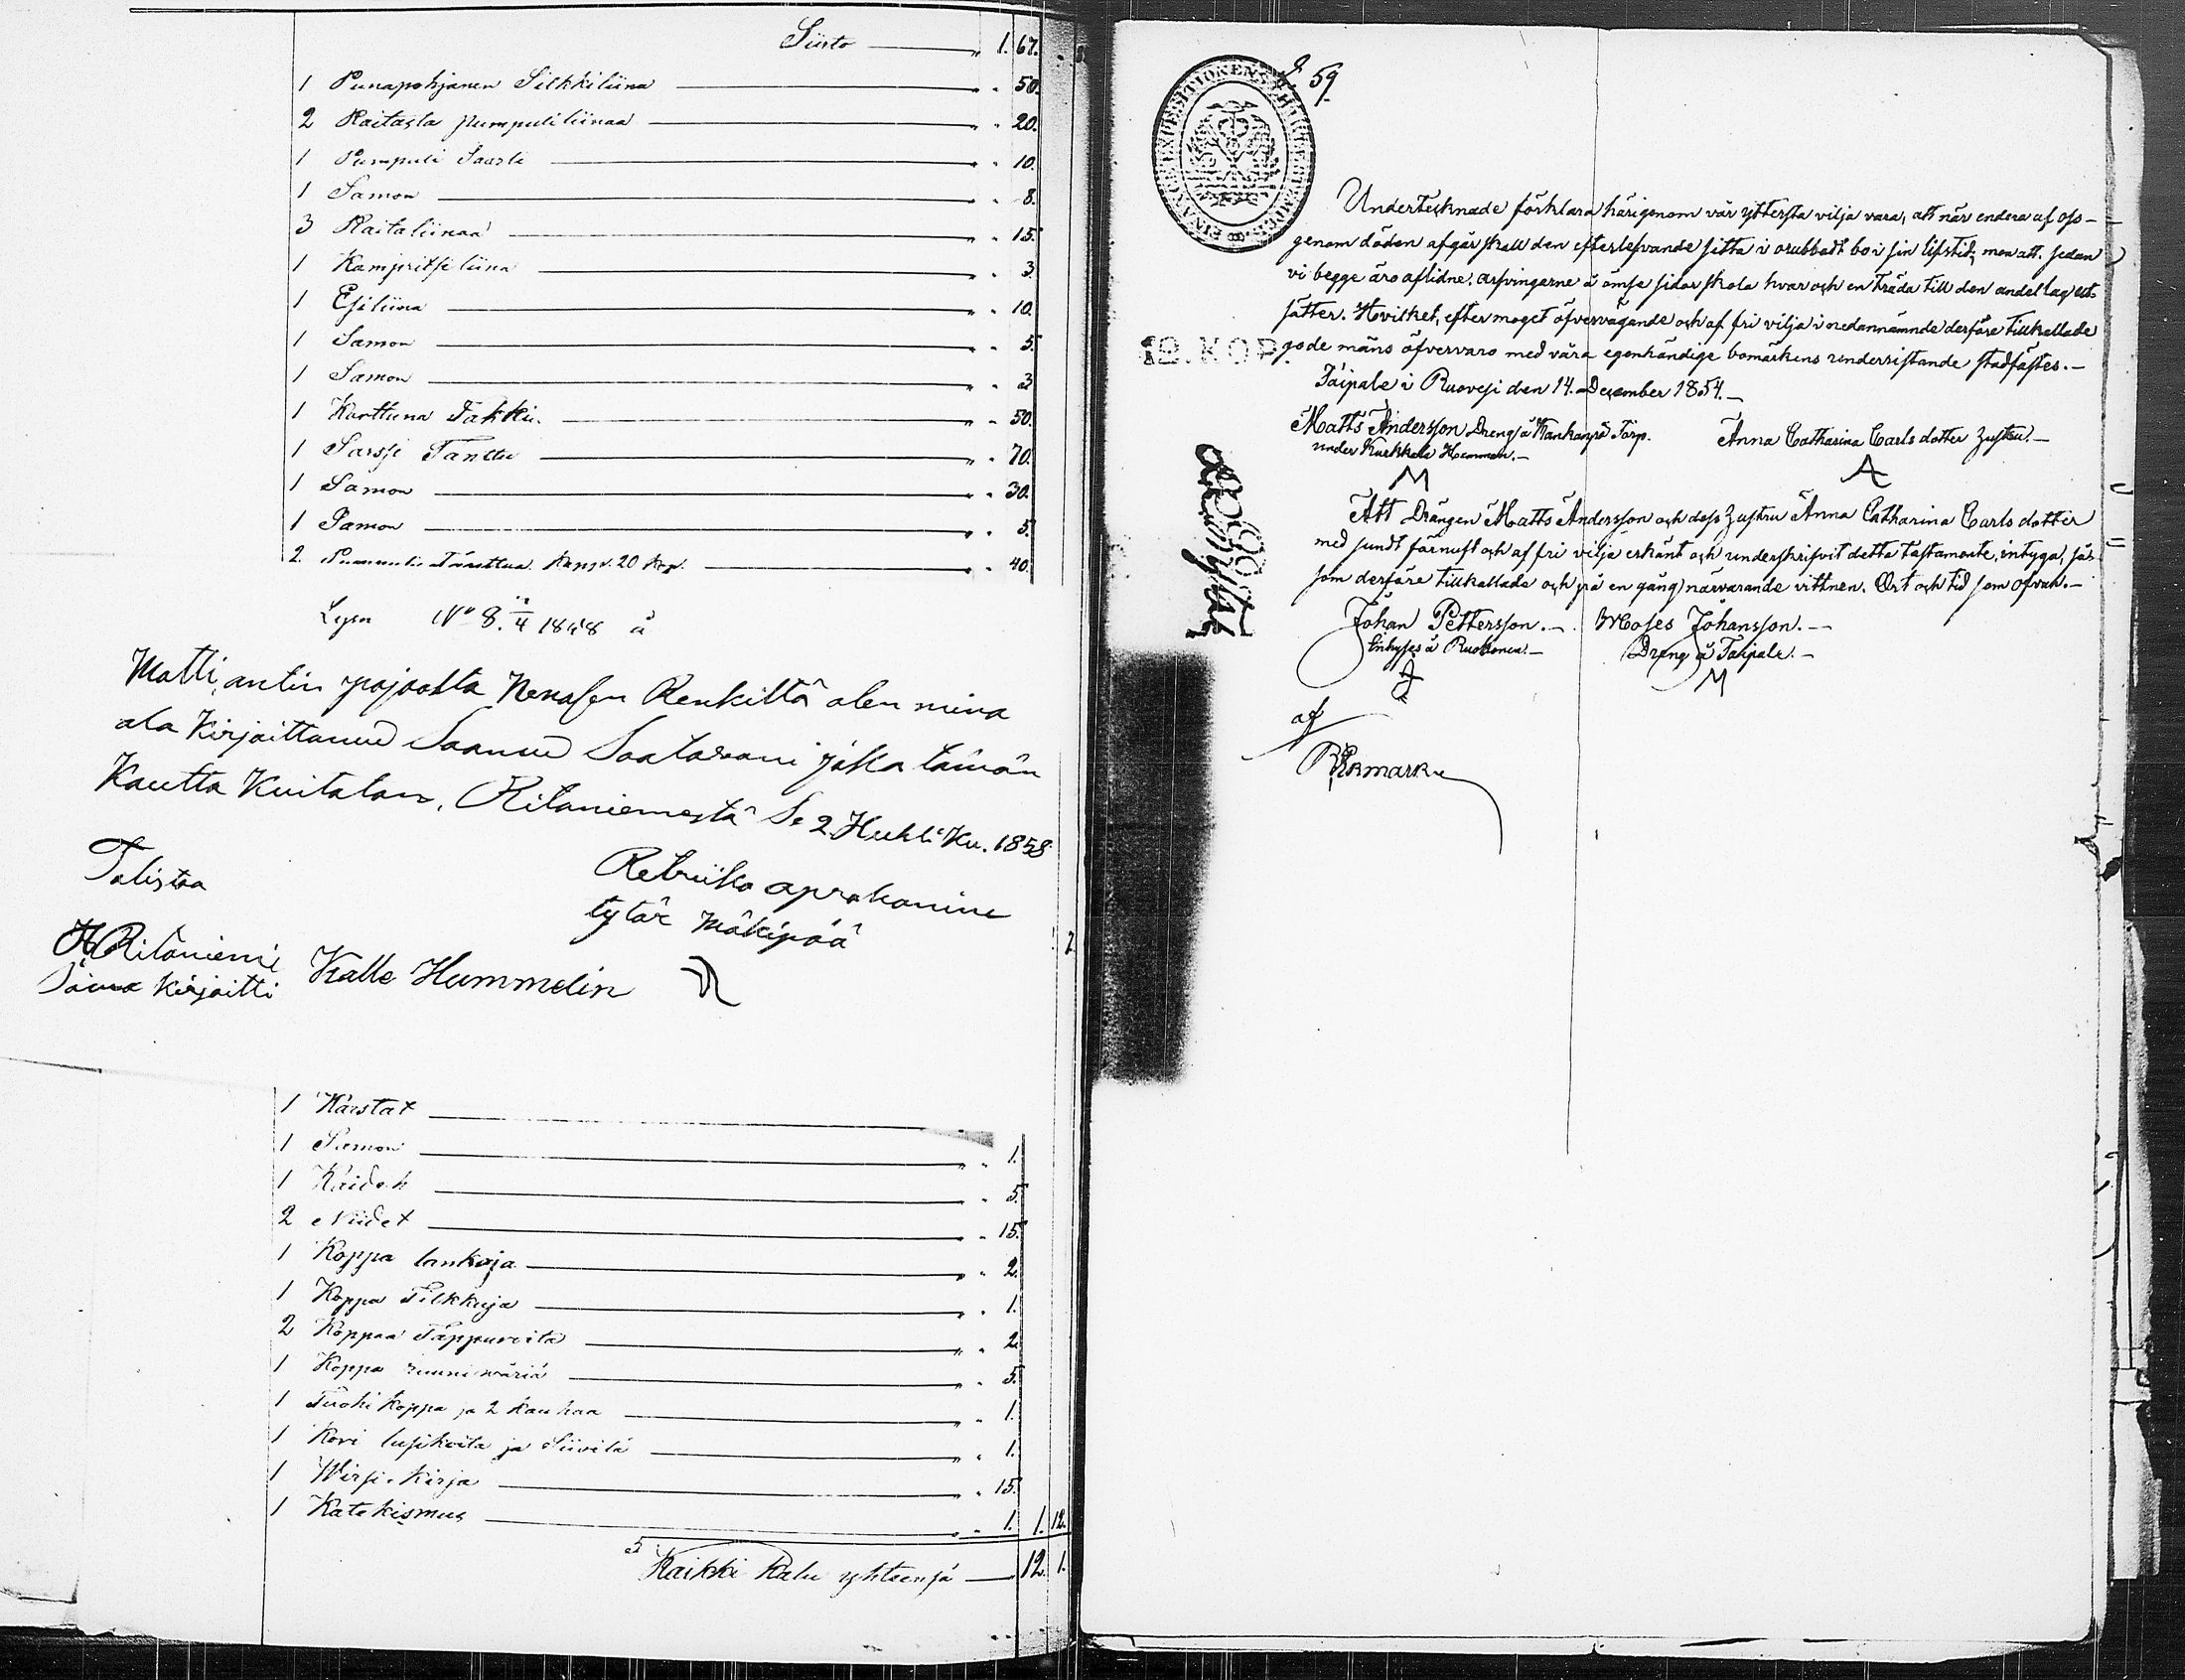 Siirto " 1. 67.
1 Punapohjanen Silkkiliina " " 50.
2 Raitasta pumpuliliinaa " " 20.
1 Pumpuli Saarli " " 10.
1 Samon " " 8.
3 Raitaliinaa " " 15.
1 Kampritsi liina " " 3.
1 Esiliina " " 10.
1 Samon " " 5.
1 Samon " " 3
1 Karttuna Takki. " " 50.
1 Sarssi Tanttu " " 70.
1 Samon " " 30.
1 Samon " " 5.
2. Tänttua 20 kop. " " 40.
No 8. 4 18 8 å
Matti, antin pojalta Renkiltä olen minä
ala Kirjoittanud Saanud Saatavani joka tämän
Kautta Kuitatan, Ritaniemestä Se 2 Huhti Ku. 1858
Talistaa
aprahamine
tytär Mäkipää
H Ritaniemi
Kirjoitti
Kalle Hummelin
1 Kärstat
1 Samon " " 1.
1 " " 5.
2 Niidet " " 15.
1 Koppa lankoja " " 2.
1 Koppa Tilkkuja " " 1.
2 Koppaa Tappuroita " " 2
1 Koppa " " 5.
1 Tuohi koppa ja 2 kauhaa " " 1.
1 Kori lusikoita ja Siivilä " " 1.
1 Wirsi-kirja " " 15.
1 Katekismus " " 1. 1. 12.
Kaikki Kalu yhteensä 12. 1.
59.
FINANCE EXPEDITIONENS CHARTÆ STEMPEL
12. KOP.
Undertecknade förklara härigenom vår yttersta vilja vara, att när endera af oss
genom döden afgår skall den efterlefvande sitta i orubbadt bo i sin lifstid; men att sedan
vi begge äro aflidne, arfvingarne å ömse sidor skola hvar och en träda till den andel lag ut-
sätter. Hvilket, efter moget öfvervägande och af fri vilja i nedannämnde derföre tillkallade
gode mäns öfvervaro med våra egenhändige bomärkens underristande stadfästes.—
Taipale i Ruovesi den 14. December 1854.—
Matts Andersson Dreng å Torp.
under Kurkkala Hemman.—
M
Anna Catharina Carls dotter hustru.—
A
Att Drängen Matts Andersson och dess hustru Anna Catharina Carls dotter
med sundt förnuft och af fri vilja erkänt och underskrifvit detta testamente, intyga, så-
som derföre tillkallade och på en gång närvarande vittnen. Ort och tid som ofvan.—
Johan Pettersson.— Moses Johansson.—
Inhyses å Dreng å Taipale.—
M
af